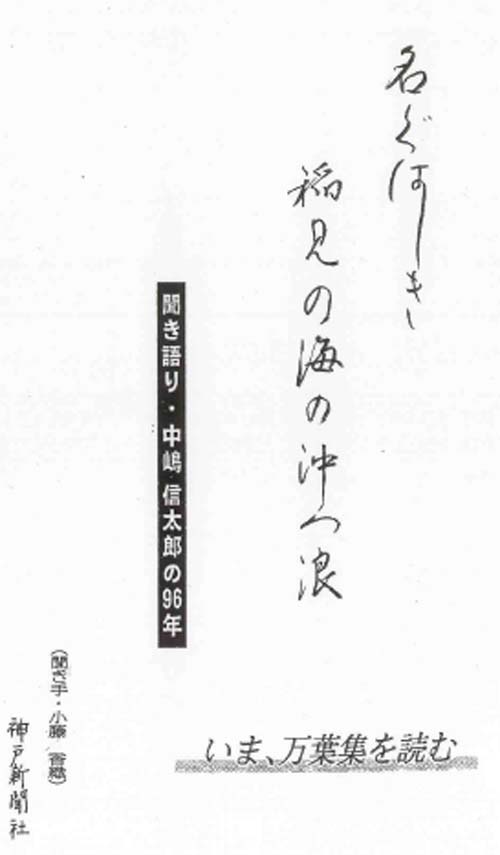 名ぐはしき
稲見の海の沖つ浪
聞き語り・中嶋 信太郎の96年
いま、万葉集を読む
(聞き手・小藤 香織)
神戸新聞社